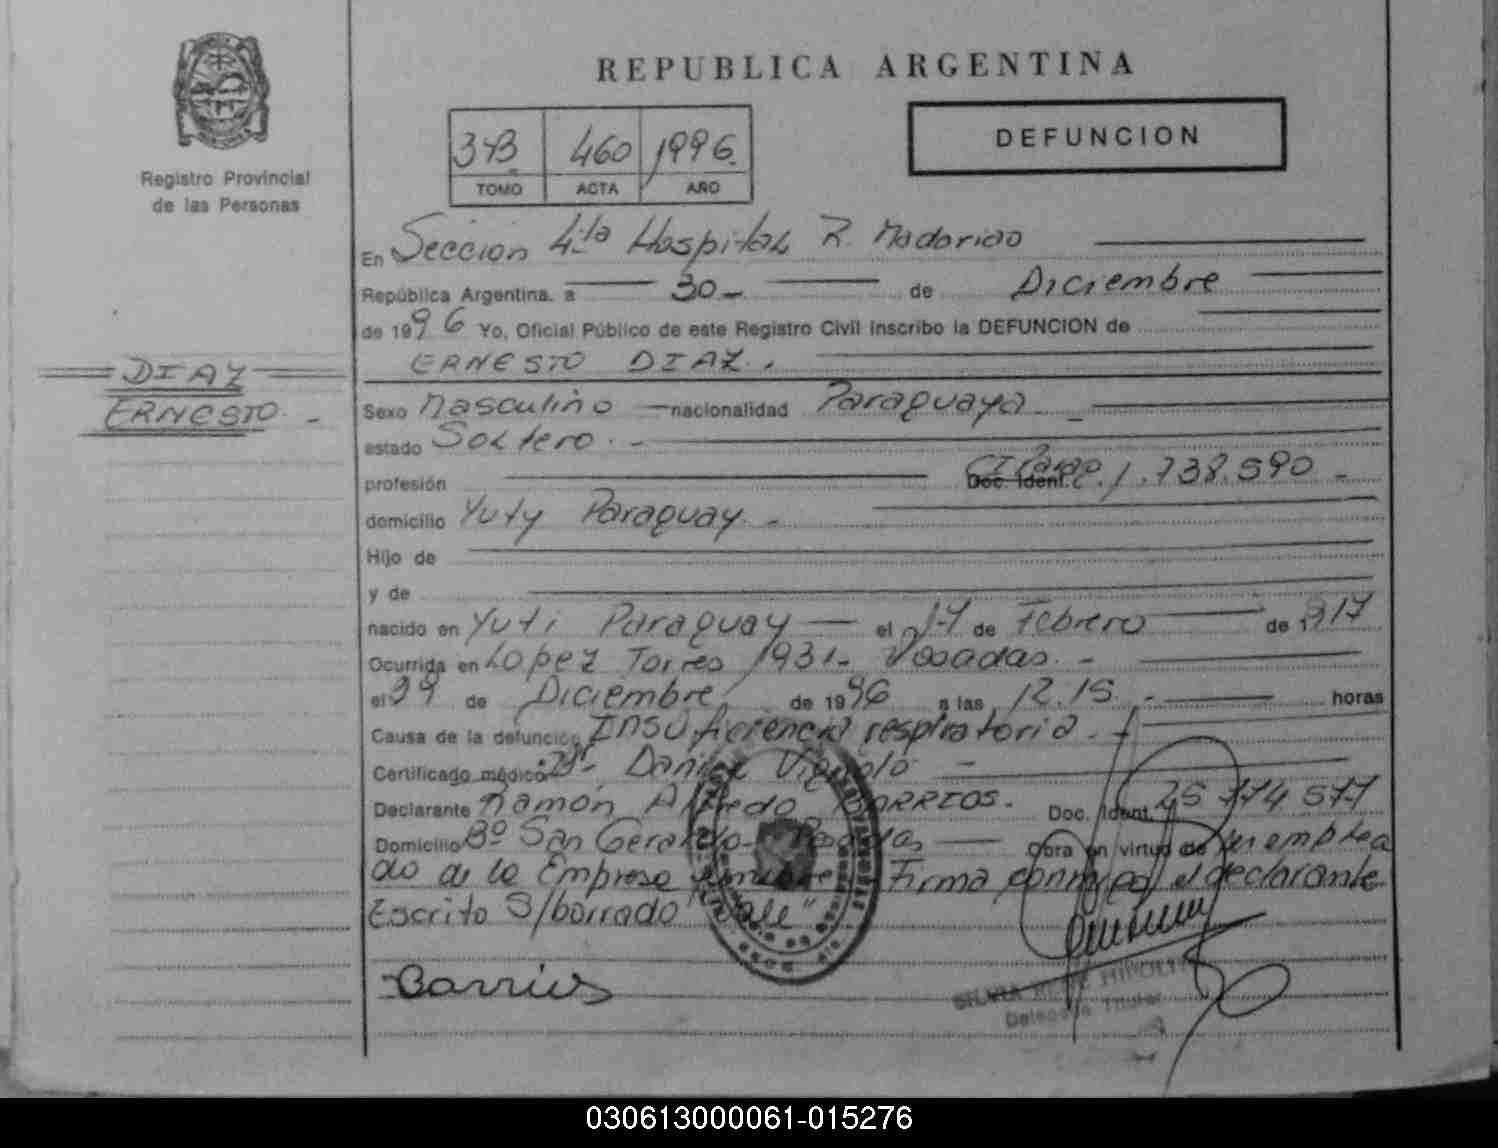 REPUBLICA ARGENTINA
DEFUNCION
343 460 1996.
TOMO ACTA AÑO
Registro Provincial
de las Personas
En Sección 4ta Hospital R. Madariaga
República Argentina. a 30 de Diciembre
de 1996 Yo, Oficial Público de este Registro Civil inscribo la DEFUNCION de
ERNESTO DIAZ.
DIAZ
ERNESTO
Sexo Masculino nacionalidad Paraguaya
estado Soltero.
profesión Doc. Ident. 1.738.590
domicilio Yuty Paraguay
Hijo de
y de
nacido en Yuti Paraguay el 17 de Febrero de 1917
Ocurrida en Lopez Torres 1931- Posadas.
el 29 de Diciembre de 1996 a las 12.15 horas
Causa de la defunción Insuficiencia respiratoria.
Certificado médico Dr. Daniel
Declarante Ramón Alfredo BARRIOS. Doc. Ident. 25 774 577
Domicilio Bº San Gerardo Posadas Obra en virtud de ser emplea
do de la Empresa Firma conmigo el declarante
Escrito S/borrado "Vale"
Barrios
SILVIA HIPOLIT
Delegada Titular
030613000061-015276